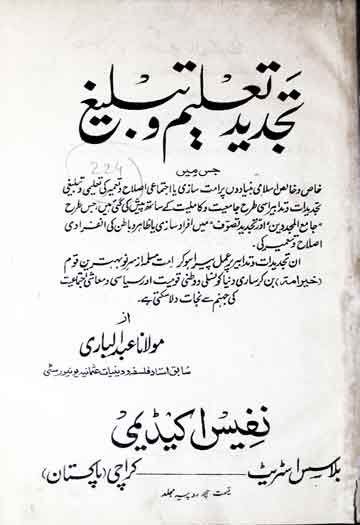 تجدید تعلیم و تبلیغ
224
جس میں
خاص و خالص اسلامی بنیادوں پر امت سازی یا اجتماعی اصلاح و تعمیر کی تعلیمی و تبلیغی
تجدیدات و تدابیر اسی طرح جامعیت و کاملیت کے ساتھ پیش کی گئی ہیں، جس طرح
"جامع المجددین" اور تجدید تصوف" میں افراد سازی یا ظاہر و باطن کی انفرادی
اصلاح و تعمیر کی۔
ان تجدیدات و تدابیر پر عمل پیرا ہو کر امت مسلمہ از سر نو بہترین قوم
(خیر امۃ) بن کر ساری دنیا کو نسلی و وطنی قومیت اور سیاسی و معاشی اجتماعیت
کی جہنم سے نجات دلا سکتی ہے۔
از
مولانا عبدالباری
سابق استاد فلسفہ و دینیات عثمانیہ یونیورسٹی
نفیس اکیڈیمی
بلاسس اسٹریٹ ـــــ کراچی (پاکستان)
قیمت چھ روپیہ مجلد